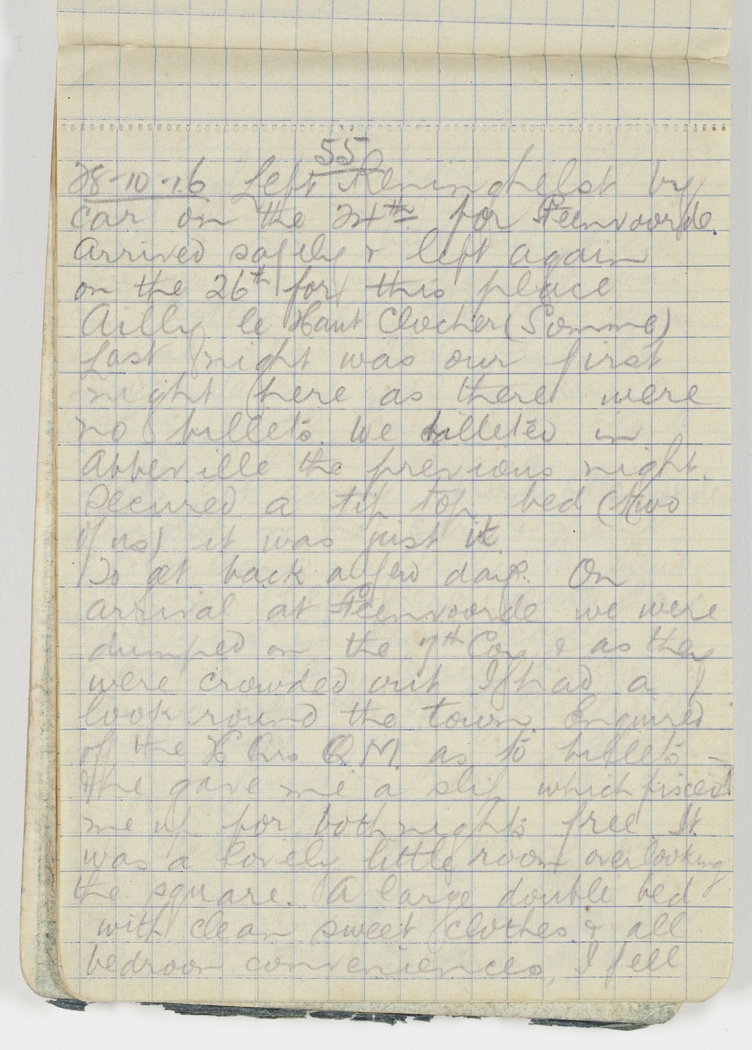 55
28-10-16 Left Reninghelst by
car on the 24th for Steenvoorde.
Arrived safely & left again
on the 26th for this place
Ailly le Haut Clocher (Somme)
Last night was our first
night here as there were
no billets. We billeted in
Abbeville the previous night.
Secured a tip top bed (two
of us) it was just it
To get back a few days. On
arrival at Steenvoorde we were
dumped on the 7th Coy & as they
were crowded out I had a
look round the town. Enquired
of the H Qrs Q.M. as to billets –
He gave me a slip which fixed
me up for both nights free It
was a lovely little room overlooking
the square. A large double bed
with clean sweet clothes & all
bedroom conveniences, I fell